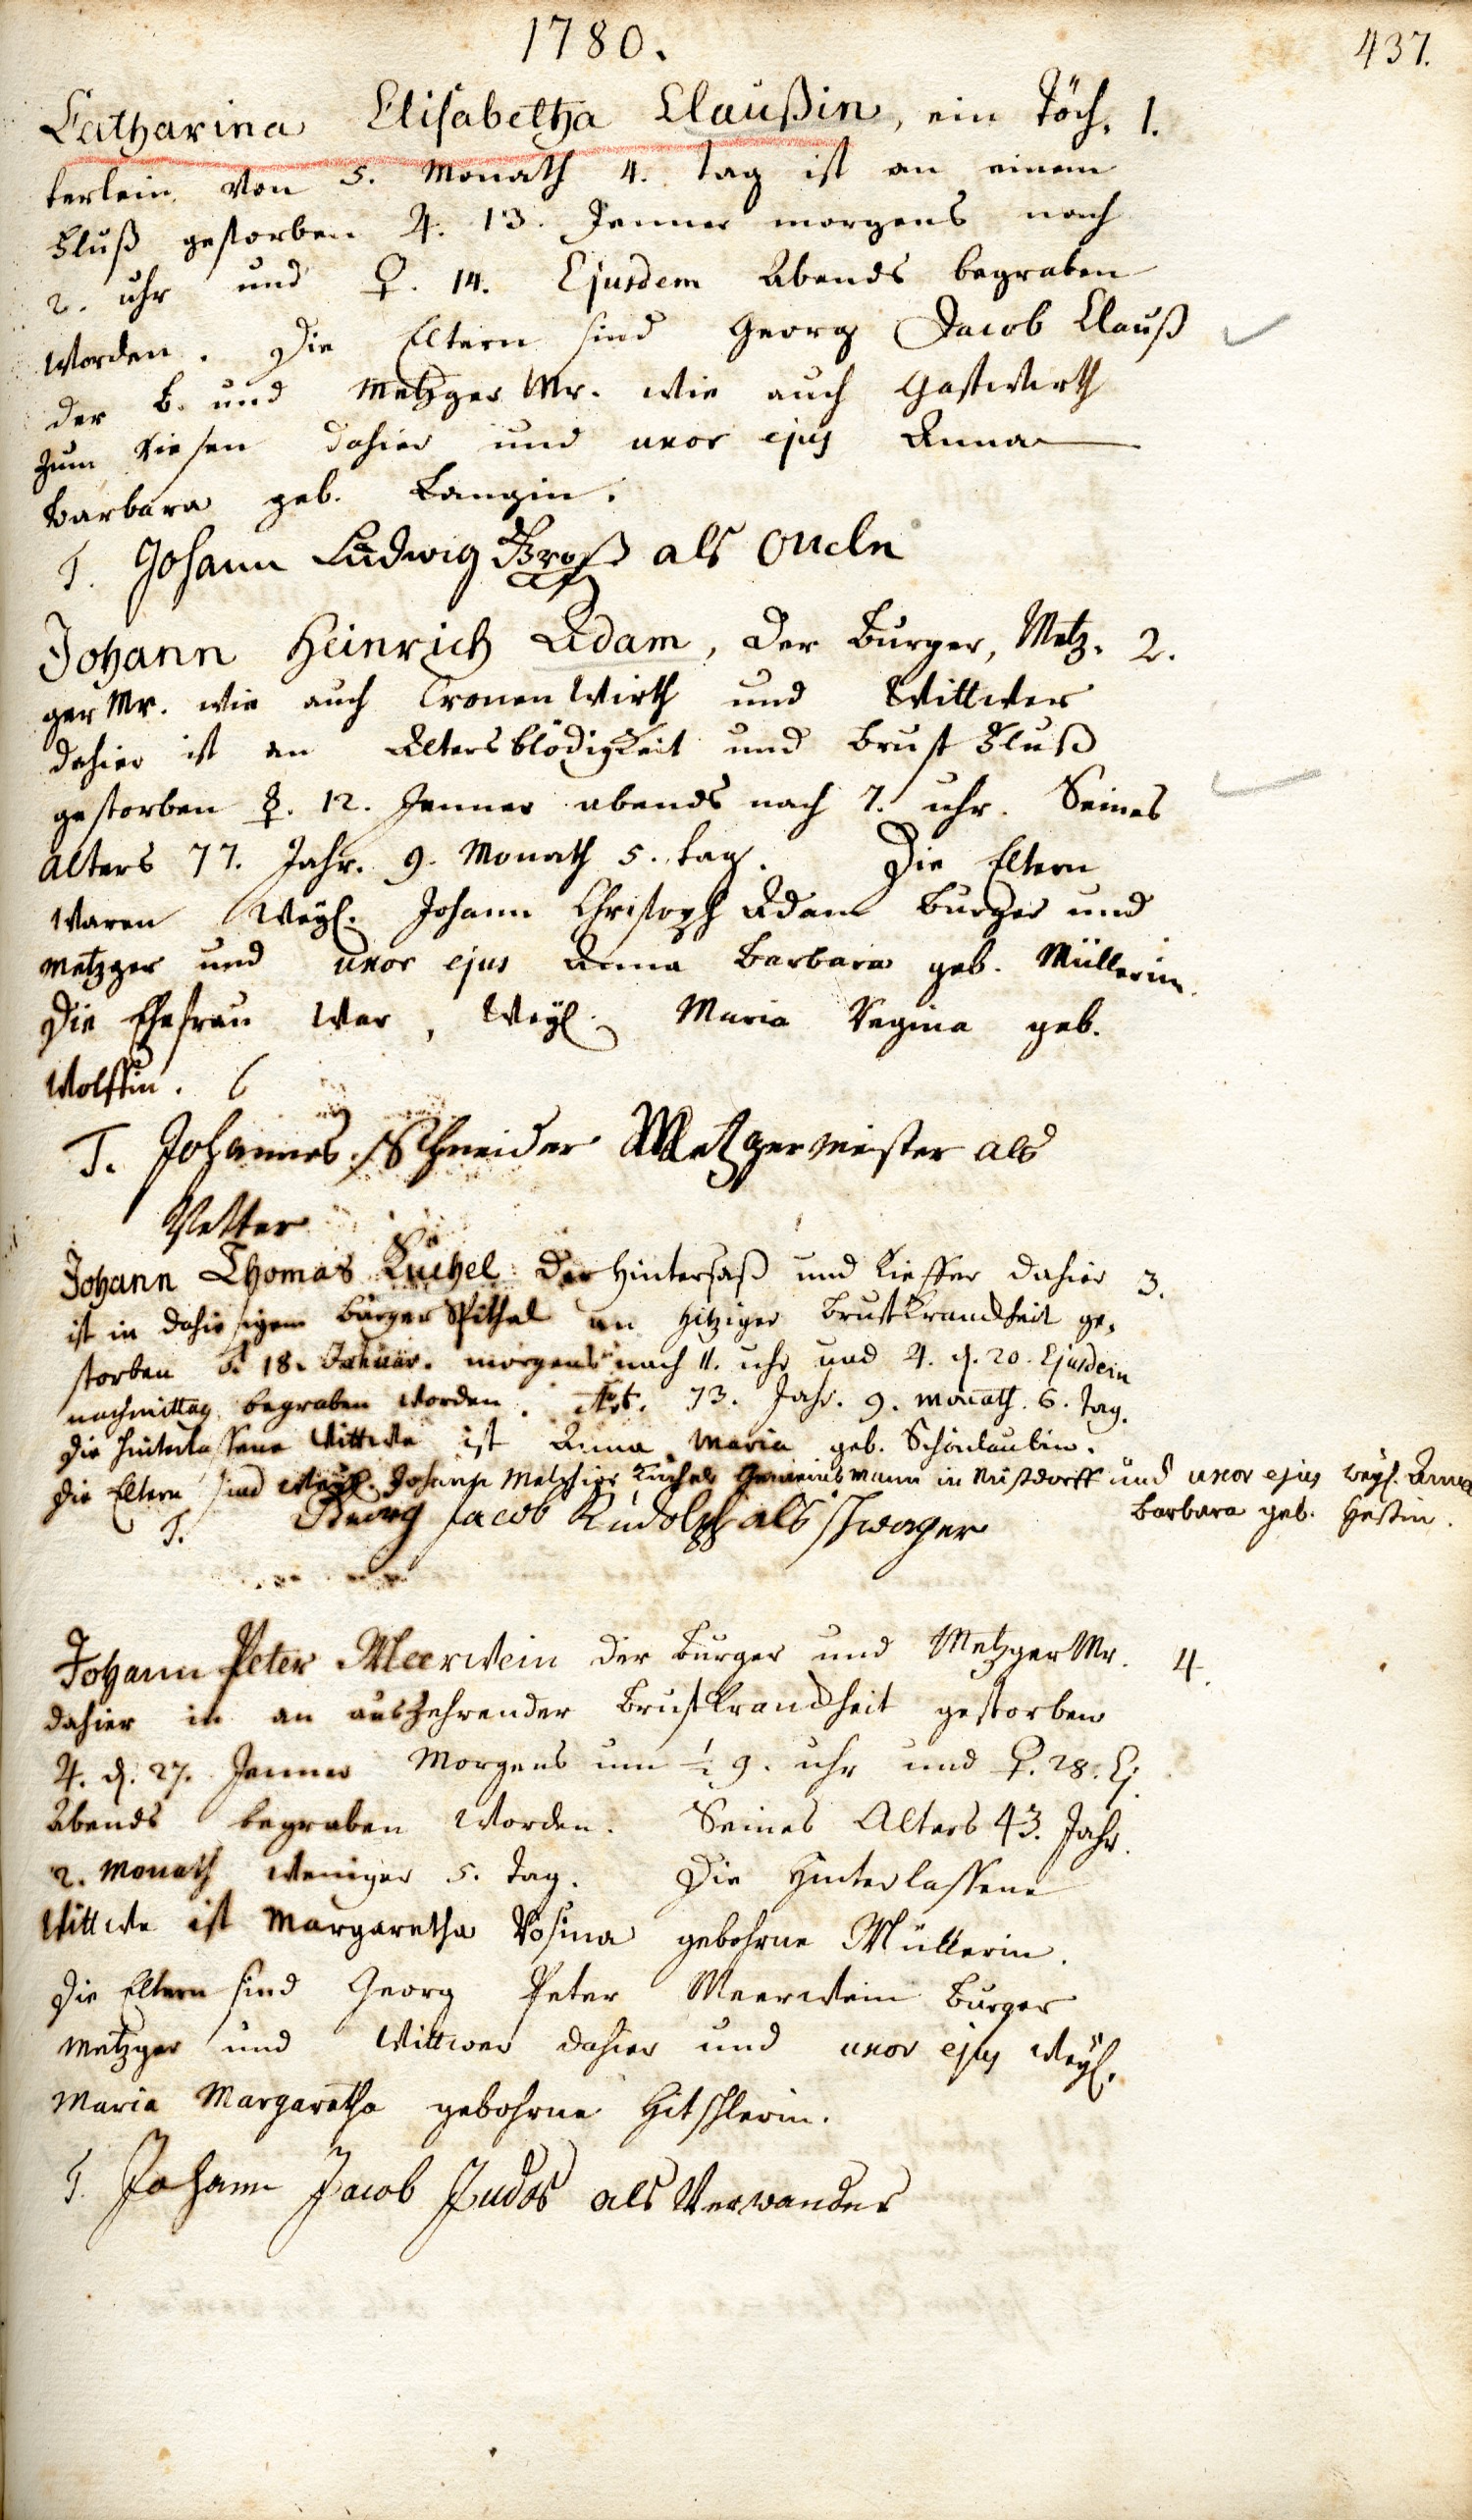 1780.
437.
Catharina Elisabetha Claußin, ein Töch, 1.
terlein von 5. Monath 4. tag ist an einem
Fluß gestorben ♃. 13. Jenner morgens nach
2. uhr und ♀. 14. Ejusdem Abends begraben
worden. Die Eltern sind Georg Jacob Clauß
der B. und Metzger Mr. wie auch Gastwirth
zum Riesen dahier und uxor ejus Anna
Barbara geb. Langin.
T. Johann Ludwig Groß als oncle
Johann Heinrich Adam, der Burger, Metz- 2.
ger Mr. wie auch Cronen Wirth und Wittwer
dahier ist an Altersblödigkeit und Brust Fluß
gestorben ☿. 12. Jenner abends nach 7. uhr. Seines
Alters 77. Jahr. 9. Monath 5. tag. Die Eltern
waren weyl. Johann Christoph Adam Burger und
Metzger und uxor ejus Anna Barbara geb. Müllerin.
Die Ehefrau war, weyl. Maria Regina geb.
Wolffin.
T. Johannes Schneider Metzgermeister als
Vetter
Johann Thomas Küchel der Hintersaß und Kieffer dahier 3.
ist in dahiesigem Burger Spithal an hitziger Brustkranckheit ge,
storben ♂ 18. Januar. morgens nach 11. uhr und ♃. d. 20. Ejusdem
nachmittag begraben worden. Aet. 73. Jahr. 9. Monath. 6. Tag.
Die hinterlassene Wittwe ist Anna Maria geb. Schönlaubin.
Die Eltern sind weyl. Johann Melchior Küchel Gemeinsmann in Nusdorff und uxor ejus weyl. Anna
Barbara geb. Heßin.
T. Georg Jacob Rudolph als schwager
Johann Peter Meerwein der Burger und Metzger Mr. 4.
dahier in an auszehrender Brustkranckheit gestorben
♃. d. 27. Jenner Morgens um ½ 9. uhr und ♀. 28. Ej.
Abends begraben worden. Seines Alters 43. Jahr.
2. Monath weniger 5. tag. Die Hinterlassene
Wittwe ist Margaretha Rosina gebohrne Müllerin.
Die Eltern sind Georg Peter Meerwein Burger
Metzger und Wittwer dahier und uxor ejus weyl.
Maria Margaretha gebohrne Hitschlerin.
T. Johann Jacob als Verwander